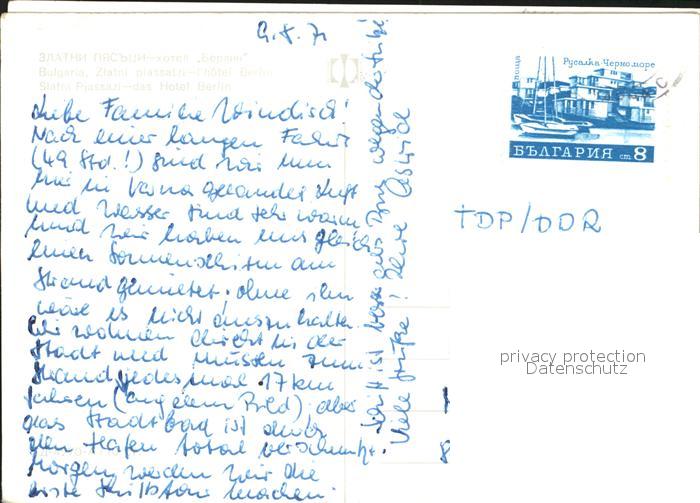 9.8.71
ЗЛАТНИ ПЯСЪЦИ—хотел „Берлин"
Bulgaria, Zlatni piassatzi—l'hôtel Berlin
Slatni Pjassazi—das Hotel Berlin
Liebe Familie Windisch!
Nach einer langen Fahrt
(49 Std.!) sind wir nun
hier in Varna gelandet. Luft
und Wasser sind sehr warm
und wir haben uns gleich
einen Sonnenschirm am
Strand gemietet. ohne ihn
wäre es nicht auszuhalten.
Wir wohnen direkt in der
Stadt und müssen zum
Strand jedesmal 17 km
fahren (auf dem Bild), aber
das Stadtbad ist durch
den Hafen total verschmutzt.
Morgen werden wir die
erste Schiffstour machen.
Schrift ist
Viele Grüße! Deine
поща
Русалка-Черноморе
БЪЛГАРИЯ ст 8
TDP/DDR
privacy protection
Datenschutz